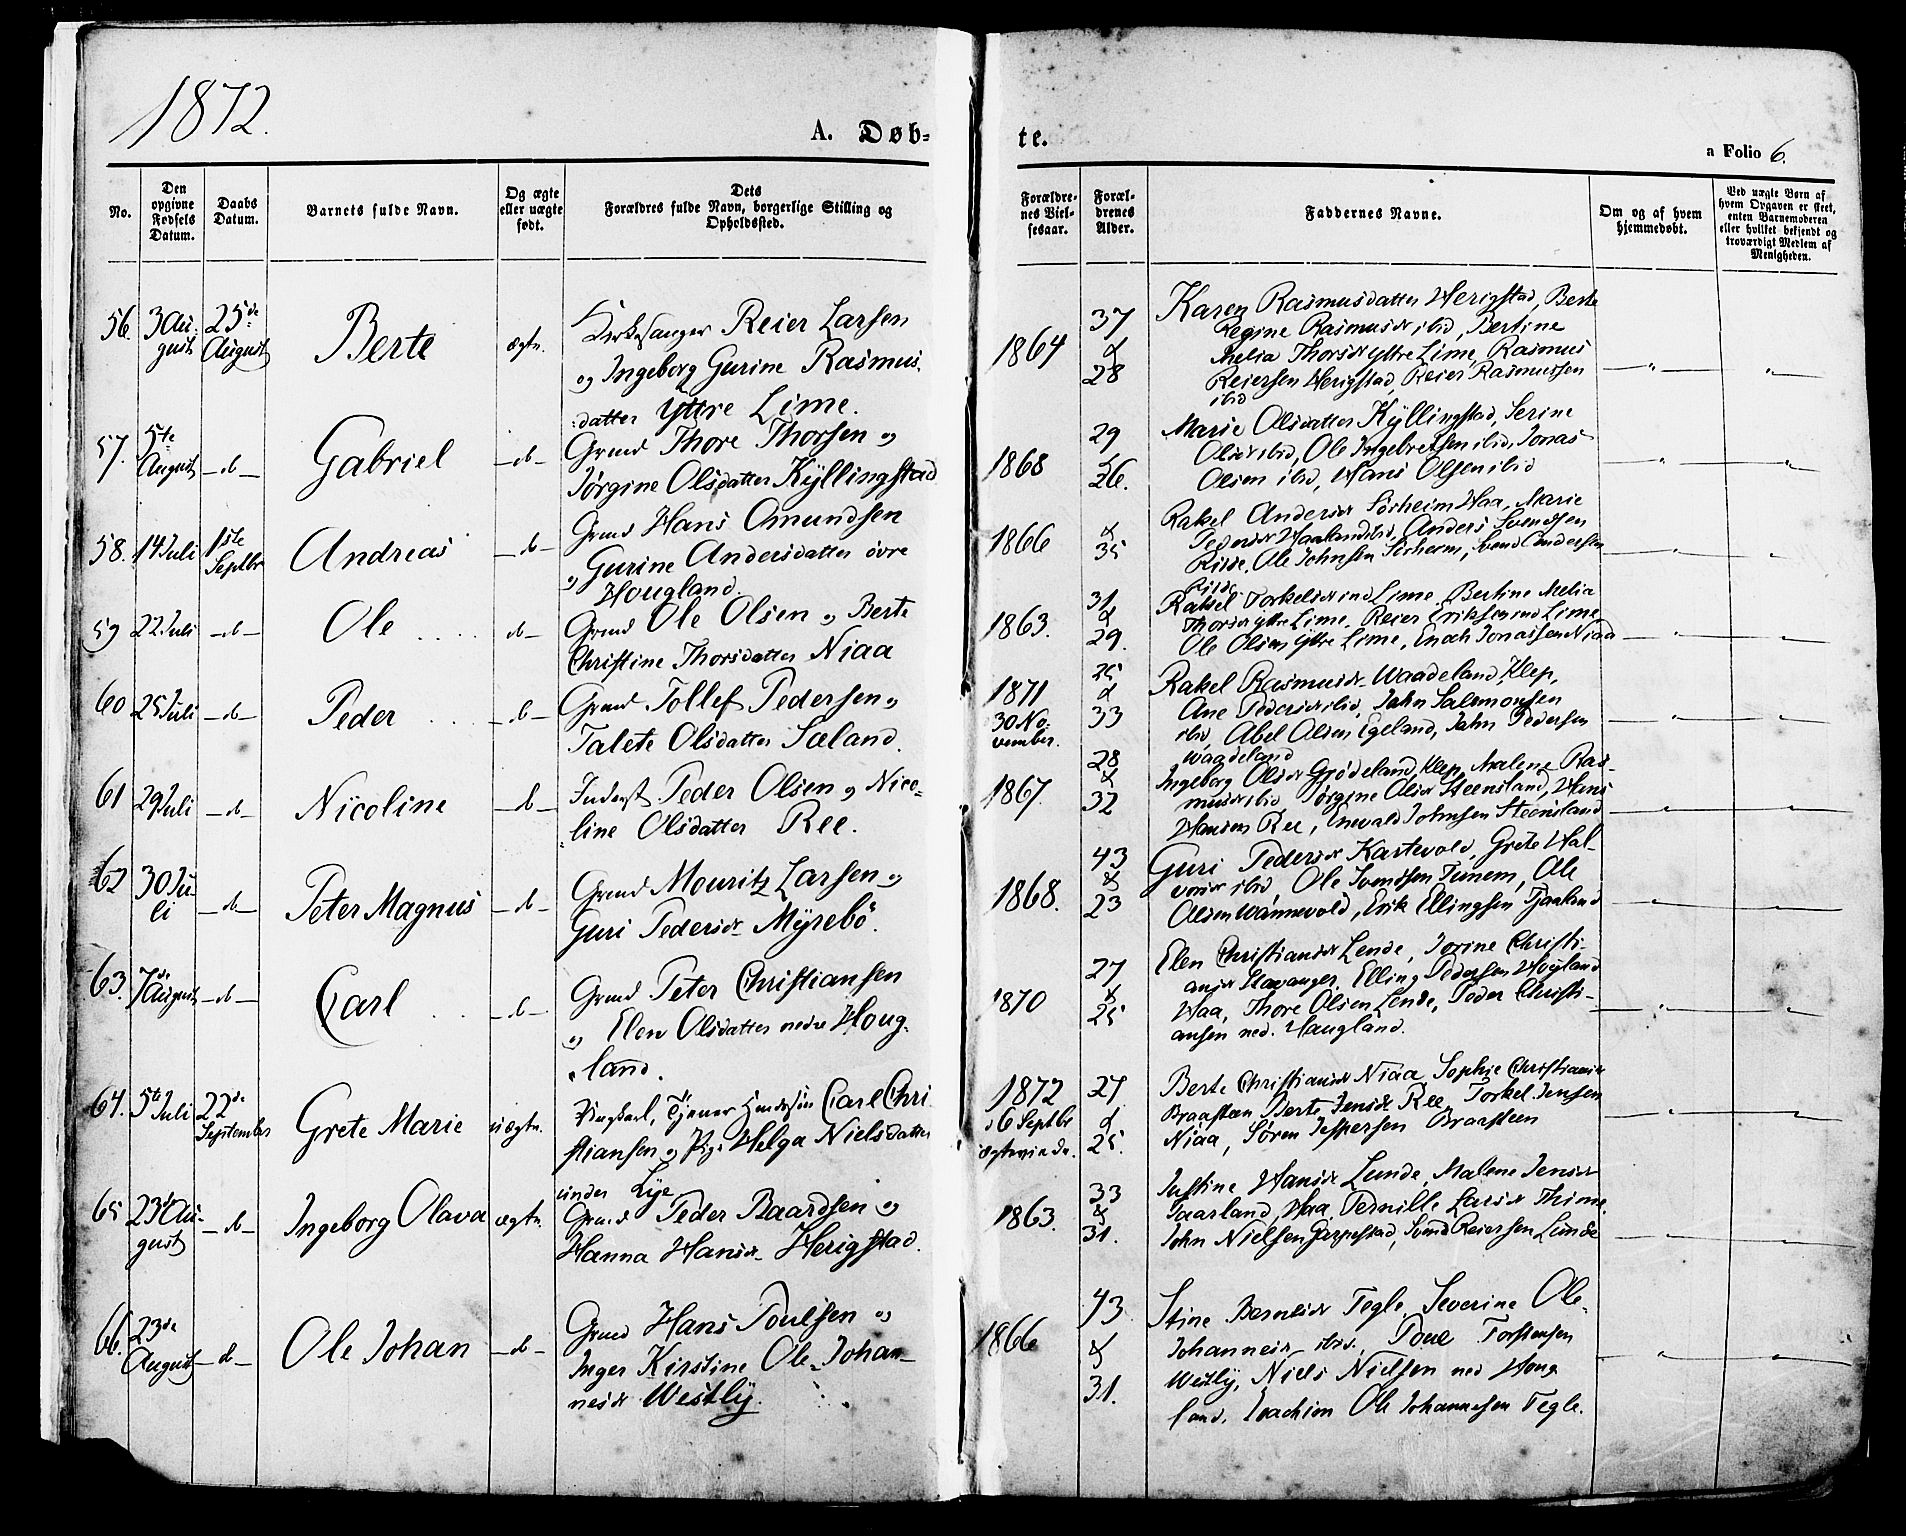 1872.
A. Døb=
te.
a Folio 6.
No.
Den opgivne Fødsels Datum.
Daabs Datum.
Barnets fulde Navn.
Og ægte eller uægte født.
Dets Forældres fulde Navn, borgerlige Stilling og Opholdssted.
Forældrenes Vielsesaar.
Forældrenes Alder.
Faddernes Navne.
Om og af hvem hjemmedøbt.
Ved uægte Børn af hvem Opgaven er skeet, enten Barnemoderen eller hvilket bekjendt og troværdigt Medlem af Menigheden.
56. 3 August 25de August Berte ægte. Kirkesanger Reier Larsen
og Ingeborg Gurine Rasmus-
datter Yttre Lime.
1864 37 & 28
Karen Rasmusdatter Herigstad, Berte
Regine Rasmusdr ibid, Bertine
Melia Thorsdr Yttre Lime, Rasmus
Reiersen Herigstad, Reier Rasmussen
ibid
57. 5te August -d- Gabriel -d- Grmd Thore Thorsen og
Jørgine Olsdatter Kÿllingstad
1868 29 & 26.
Marie Olsdatter Kÿllingstad, Serine
Olsdr ibid, Ole Ingebretsen ibid, Jonas
Olsen ibid, Hans Olsen ibid
58. 14 Juli 1ste Septbr Andreas -d- Grmd Hans Omundsen
og Gurine Andersdatter øvre
Hougland.
1866 & 35
Rakel Andersdr Sørheim Haa, Marie
Pedersdr Haaland ibid, Anders Svendsen
Risse, Ole Johnsen Sørheim, Svend Andersen
Risse
59 22 Juli -d- Ole -d- Grmd Ole Olsen og Berte
Christine Thorsdatter Niaa
1863. 31 & 29.
Rakel Torkelsdr ind Lime, Bertine Melia
Thorsdr Yttre Lime, Reier Eriksen ind Lime
Ole Olsen Yttre Lime, Enoch Jonassen Niaa
60 25 Juli -d- Peder -d- Grmd Tollef Pedersen og
Talete Olsdatter Sæland.
1871 30 November. 25 & 33
Rakel Rasmusdr Waadeland, Klep,
Ane Pedersdr ibid, Jahn Salemonsen
ibid, Abel Olsen Egeland, Jahn Pedersen
Waadeland
61 29 Juli -d- Nicoline -d- Inderst Peder Olsen og Nico-
line Olsdatter Ree.
1867. 28 & 32
Ingeborg Olsdr Grødeland, Klep, Malene Ras-
musdr ibid, Jørgine Olsdr Steensland, Hans
Hansen Ree, Enevald Johnsen Steensland
62 30 Juli -d- Peter Magnus -d- Grmd Mouritz Larsen og
Guri Pedersdr Mÿrebö.
1868. 43 & 23
Guri Pedersdr Kartevold, Grete Hal-
vorsdr ibid, Ole Svendsen Tunem, Ole
Olsen Wannevold, Erik Ellingsen Tjaaland
63. 7de August -d- Carl -d- Grmd Peter Christiansen
og Elen Olsdatter nedre Houg-
land.
1870 27 & 25
Elen Christiansdr Lende, Jorine Christi-
ansdr Stavanger, Elling Pedersen Høyland
Haa, Thore Olsen Lende, Peder Christi-
ansen ned. Haugland.
64. 5te Juli 22de September Grete Marie uægte. Ungkarl, Tjener Carl Chri
stiansen og Pige Helga Nielsdatter
under Lÿe
1872 6 Septbr 27 & 25.
Berte Christiansdr Niaa, Sophie Christiansdr
Braasteen Berte Jensdr Ree, Torkel Jensen
Niaa, Søren Jespersen Braasteen
65 23de August -d- Ingeborg Olava ægte. Grmd Peder Baardsen og
Hanna Hansdr Herigstad.
1863. 33 & 31.
Justine Hansdr Lunde, Malene Jensdr
Taarland, Haa, Pernille Larsdr Thime,
John Nielsen Garpestad, Svend Reiersen Lunde
66. 23de August -d- Ole Johan -d- Grmd Hans Poulsen og
Inger Kirstine Ole-Johan-
nesdr Westlÿ.
1866 43 & 31.
Stine Berntsdr Tegle, Severine Ole-
Johannesdr ibid, Poul Torstensen
Westlÿ, Niels Nielsen ned Houg
land, Joachim Ole Johannesen Tegle.